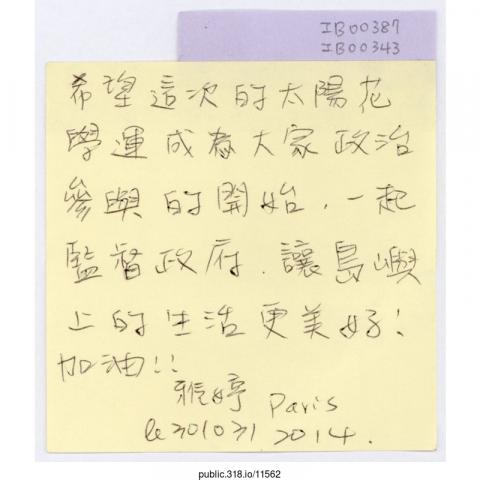 IB00387
IB00343
希望這次的太陽花
學運成為大家政治
參與的開始,一起
監督政府.讓島嶼
上的生活更美好!
加油!!
雅婷 Paris
le 30/03/ 2014.
public.318.io/11562